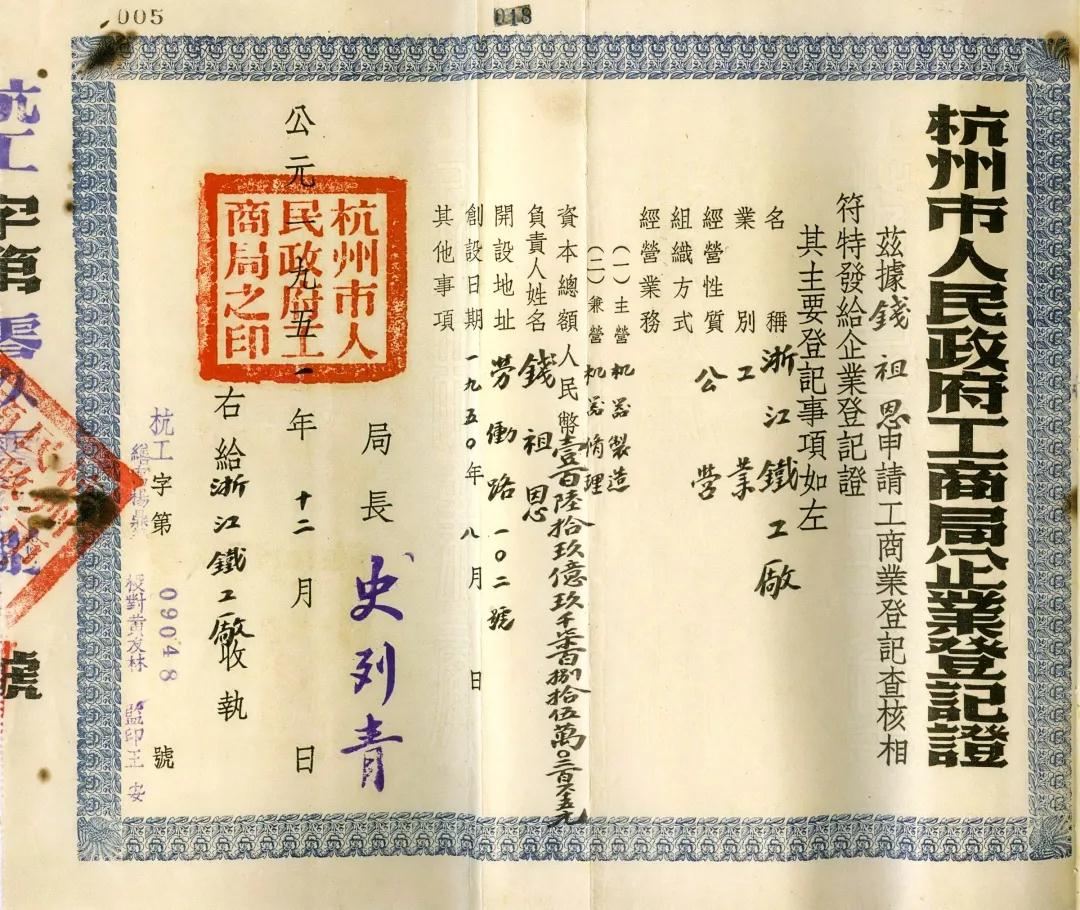 005
018
杭州市人民政府工商局公企業登記證
茲據錢祖恩申請工商業登記查核相
符特發給企業登記證
其主要登記事項如左
名稱 浙江鐵工廠
業別 工業
經營性質 公營
組織方式
經營業務
(一)主營 机器製造
(二)兼營 机器脩理
資本總額 人民幣壹百陸拾玖億玖千柒百捌拾伍萬〇三百六十五元
負責人姓名 錢祖恩
開設地址 勞働路一〇二號
創設日期 一九五〇年八月 日
其他事項
局長 史列青
公元一九五一年十二月 日
杭州市人
民政府工
商局之印
右給浙江鐵工廠收執
杭工字第09048號
校對黃友林 監印王安
杭工字第零玖
號